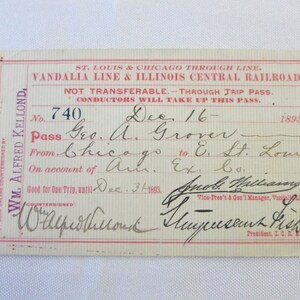 ST. LOUIS & CHICAGO THROUGH LINE.
VANDALIA LINE & ILLINOIS CENTRAL RAILROAD
NOT TRANSFERABLE.—THROUGH TRIP PASS.
CONDUCTORS WILL TAKE UP THIS PASS.
No. 740 Dec. 16 - 189
Pass Geo. A. Grover
From Chicago to E. St. Loui
On account of Am. Ex. Co.
Good for One Trip, until Dec. 31 1893.
Vice-Pres't & Gen'l Manager, Vandalia
COUNTERSIGNED:
Wm Alfred Kellond
Stuyvesant Fish
President,
WM. ALFRED KELLOND.